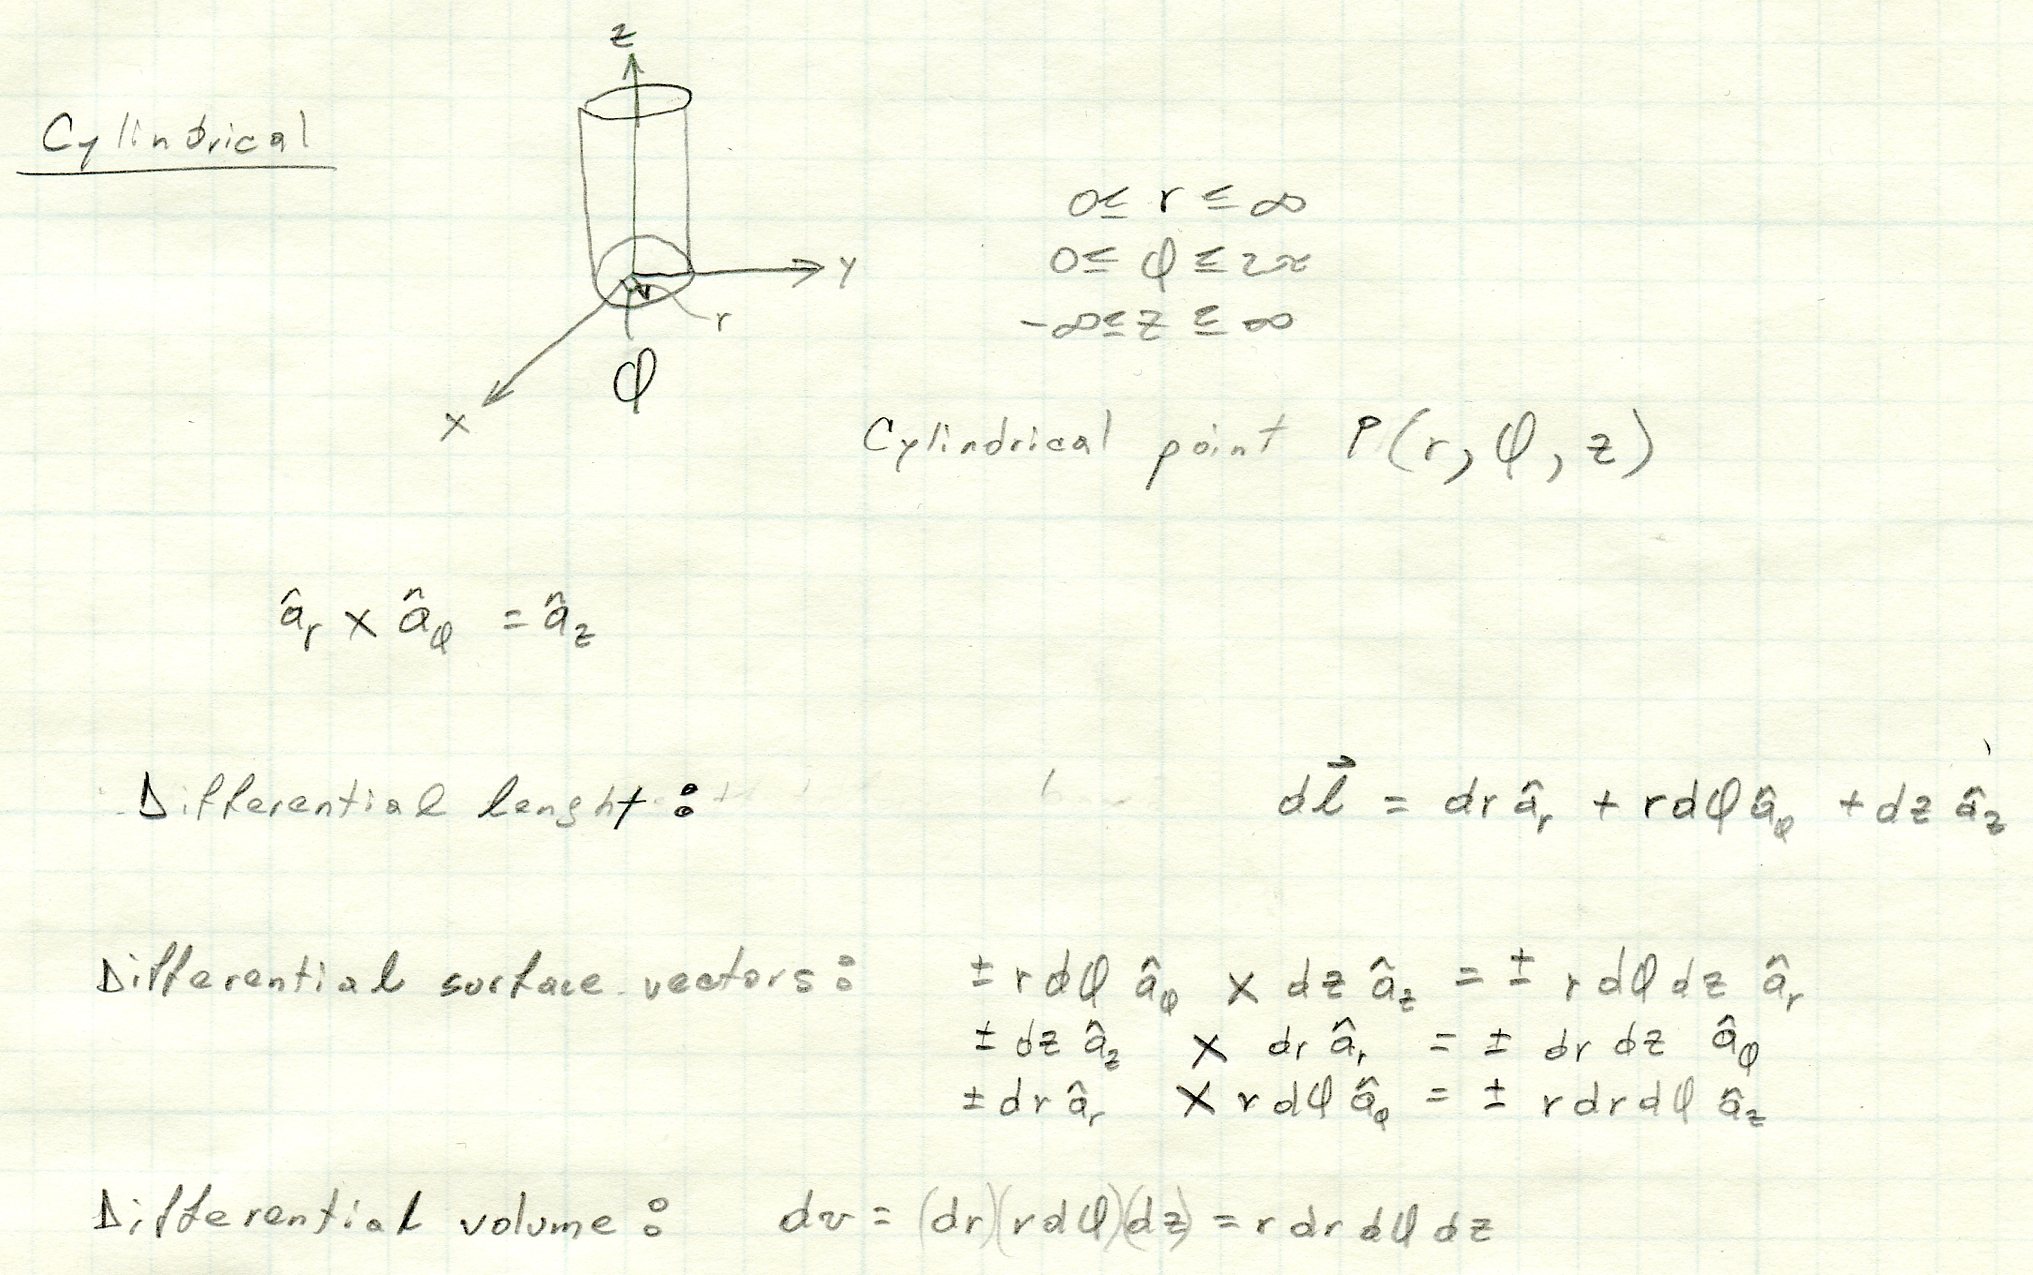 Cylindrical
z
y
r
φ
x
0 ≤ r ≤ ∞
0 ≤ φ ≤ 2π
-∞ ≤ z ≤ ∞
Cylindrical point P(r, φ, z)
â_r × â_φ = â_z
Differential lenght: dl⃗ = dr â_r + r dφ â_φ + dz â_z
Differential surface vectors: ± r dφ â_φ × dz â_z = ± r dφ dz â_r
± dz â_z × dr â_r = ± dr dz â_φ
± dr â_r × r dφ â_φ = ± r dr dφ â_z
Differential volume: dv = (dr)(r dφ)(dz) = r dr dφ dz